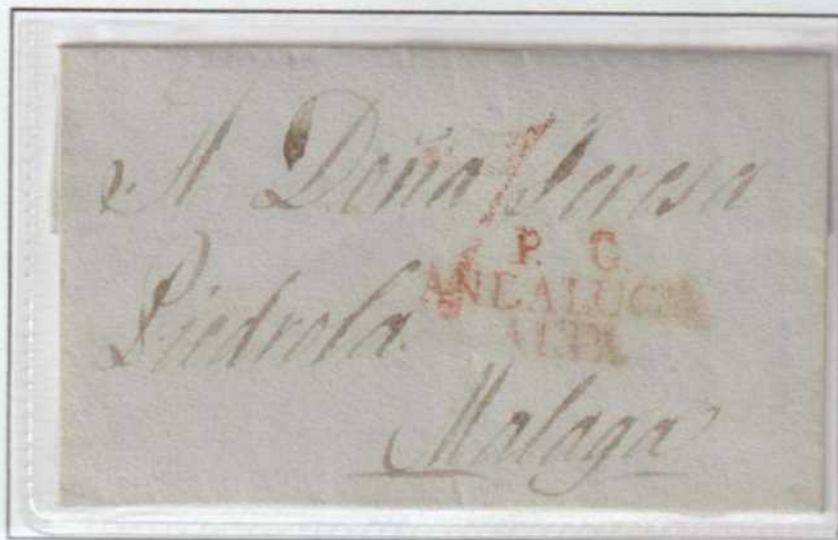 A Doña Teresa
Piedrola.
P. C.
ANDALUCIA
Malaga